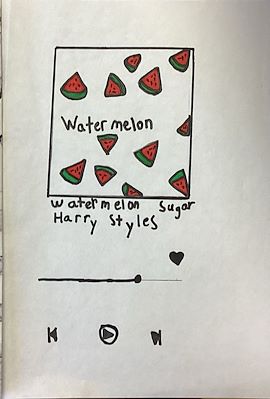 Watermelon
Watermelon Sugar
Harry Styles